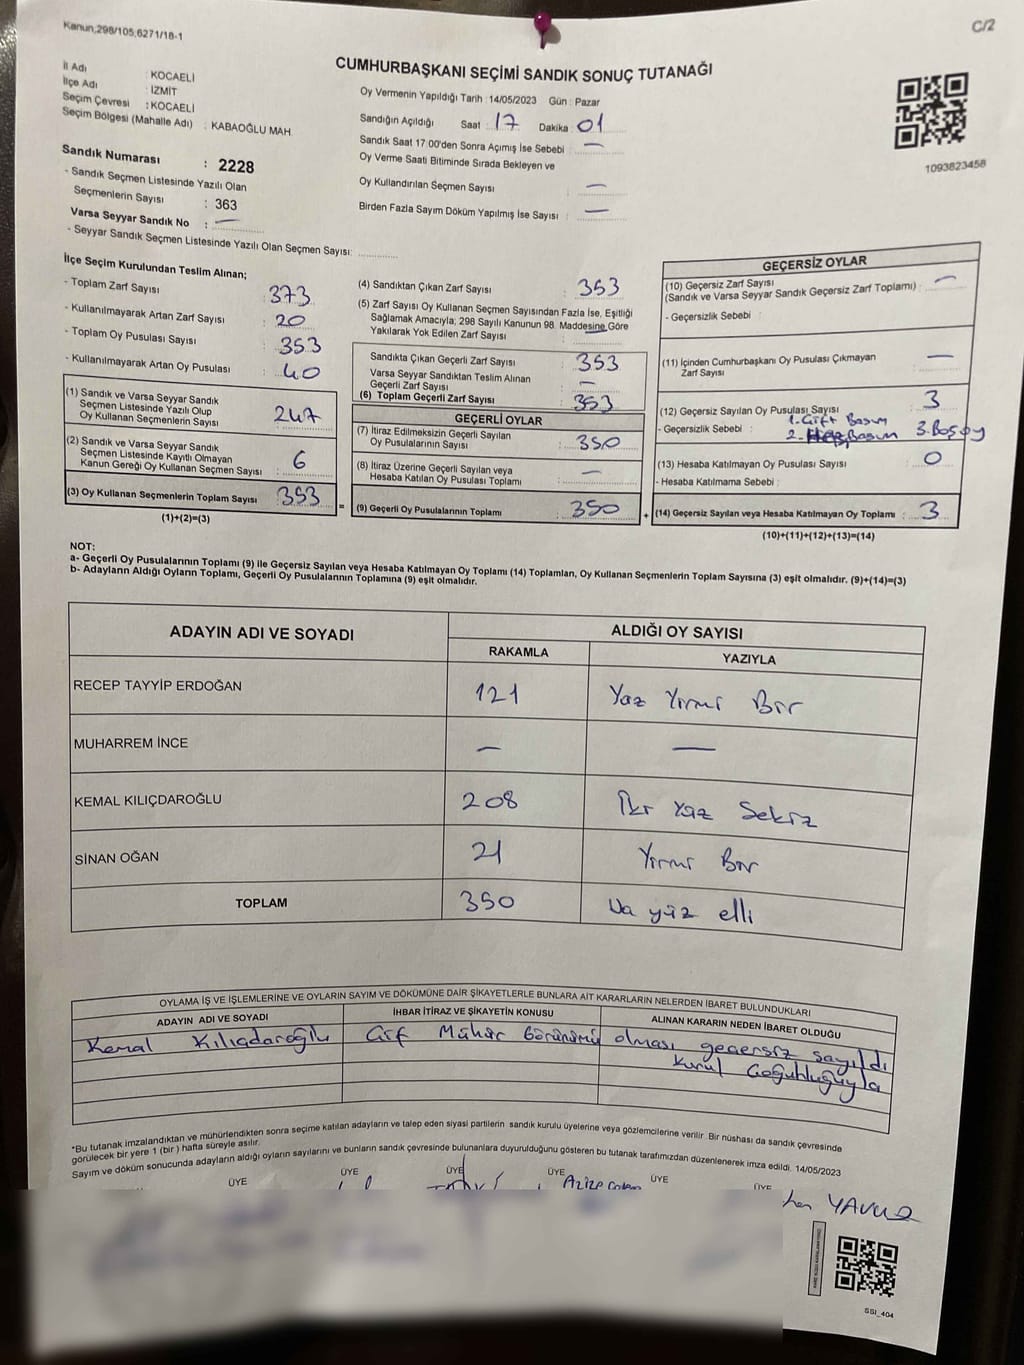 Kanun;298/105,6271/18-1
C/2
İl Adı : KOCAELİ
İlçe Adı : İZMİT
Seçim Çevresi : KOCAELİ
Seçim Bölgesi (Mahalle Adı) : KABAOĞLU MAH.
CUMHURBAŞKANI SEÇİMİ SANDIK SONUÇ TUTANAĞI
Oy Vermenin Yapıldığı Tarih : 14/05/2023 Gün : Pazar
Sandığın Açıldığı Saat : 17 Dakika : 01
Sandık Saat 17:00'den Sonra Açımış İse Sebebi : —
Oy Verme Saati Bitiminde Sırada Bekleyen ve
Oy Kullandırılan Seçmen Sayısı : —
Birden Fazla Sayım Döküm Yapılmış İse Sayısı : —
1093823458
Sandık Numarası : 2228
- Sandık Seçmen Listesinde Yazılı Olan
Seçmenlerin Sayısı : 363
Varsa Seyyar Sandık No : —
- Seyyar Sandık Seçmen Listesinde Yazılı Olan Seçmen Sayısı:
İlçe Seçim Kurulundan Teslim Alınan;
- Toplam Zarf Sayısı : 373
- Kullanılmayarak Artan Zarf Sayısı : 20
- Toplam Oy Pusulası Sayısı : 353
- Kullanılmayarak Artan Oy Pusulası : 40
(1) Sandık ve Varsa Seyyar Sandık
Seçmen Listesinde Yazılı Olup
Oy Kullanan Seçmenlerin Sayısı : 247
(2) Sandık ve Varsa Seyyar Sandık
Seçmen Listesinde Kayıtlı Olmayan
Kanun Gereği Oy Kullanan Seçmen Sayısı : 6
(3) Oy Kullanan Seçmenlerin Toplam Sayısı : 353
(1)+(2)=(3)
(4) Sandıktan Çıkan Zarf Sayısı : 353
(5) Zarf Sayısı Oy Kullanan Seçmen Sayısından Fazla İse, Eşitliği
Sağlamak Amacıyla; 298 Sayılı Kanunun 98. Maddesine Göre
Yakılarak Yok Edilen Zarf Sayısı : —
Sandıkta Çıkan Geçerli Zarf Sayısı : 353
Varsa Seyyar Sandıktan Teslim Alınan
Geçerli Zarf Sayısı : —
(6) Toplam Geçerli Zarf Sayısı : 353
GEÇERLİ OYLAR
(7) İtiraz Edilmeksizin Geçerli Sayılan
Oy Pusulalarının Sayısı : 350
(8) İtiraz Üzerine Geçerli Sayılan veya
Hesaba Katılan Oy Pusulası Toplamı : —
(9) Geçerli Oy Pusulalarının Toplamı : 350
GEÇERSİZ OYLAR
(10) Geçersiz Zarf Sayısı
(Sandık ve Varsa Seyyar Sandık Geçersiz Zarf Toplamı) : —
- Geçersizlik Sebebi :
(11) İçinden Cumhurbaşkanı Oy Pusulası Çıkmayan
Zarf Sayısı : —
(12) Geçersiz Sayılan Oy Pusulası Sayısı : 3
- Geçersizlik Sebebi : 1. Çift Basım
2. Basım 3. Boş oy
(13) Hesaba Katılmayan Oy Pusulası Sayısı : 0
- Hesaba Katılmama Sebebi :
(14) Geçersiz Sayılan veya Hesaba Katılmayan Oy Toplamı : 3
(10)+(11)+(12)+(13)=(14)
NOT:
a- Geçerli Oy Pusulalarının Toplamı (9) ile Geçersiz Sayılan veya Hesaba Katılmayan Oy Toplamı (14) Toplamları, Oy Kullanan Seçmenlerin Toplam Sayısına (3) eşit olmalıdır. (9)+(14)=(3)
b- Adayların Aldığı Oyların Toplamı, Geçerli Oy Pusulalarının Toplamına (9) eşit olmalıdır.
ADAYIN ADI VE SOYADI ALDIĞI OY SAYISI
RAKAMLA YAZIYLA
RECEP TAYYİP ERDOĞAN 121 Yüz Yirmi Bir
MUHARREM İNCE — —
KEMAL KILIÇDAROĞLU 208 İki Yüz Sekiz
SİNAN OĞAN 21 Yirmi Bir
TOPLAM 350 Üç yüz elli
OYLAMA İŞ VE İŞLEMLERİNE VE OYLARIN SAYIM VE DÖKÜMÜNE DAİR ŞİKAYETLERLE BUNLARA AİT KARARLARIN NELERDEN İBARET BULUNDUKLARI
ADAYIN ADI VE SOYADI İHBAR İTİRAZ VE ŞİKAYETİN KONUSU ALINAN KARARIN NEDEN İBARET OLDUĞU
Kemal Kılıçdaroğlu Çift Mühür Görünümü olması geçersiz sayıldı
Kurul Çoğunluğuyla
*Bu tutanak imzalandıktan ve mühürlendikten sonra seçime katılan adayların ve talep eden siyasi partilerin sandık kurulu üyelerine veya gözlemcilerine verilir. Bir nüshası da sandık çevresinde
görülecek bir yere 1 (bir) hafta süreyle asılır.
Sayım ve döküm sonucunda adayların aldığı oyların sayılarını ve bunların sandık çevresinde bulunanlara duyurulduğunu gösteren bu tutanak tarafımızdan düzenlenerek imza edildi. 14/05/2023
ÜYE ÜYE ÜYE ÜYE ÜYE ÜYE
Azize
YAVUZ
SSI_404